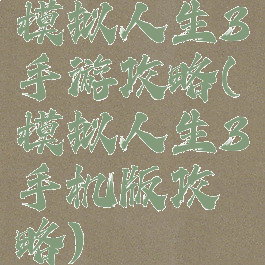 模拟人生3
手游攻略(
模拟人生3
手机版攻
略)